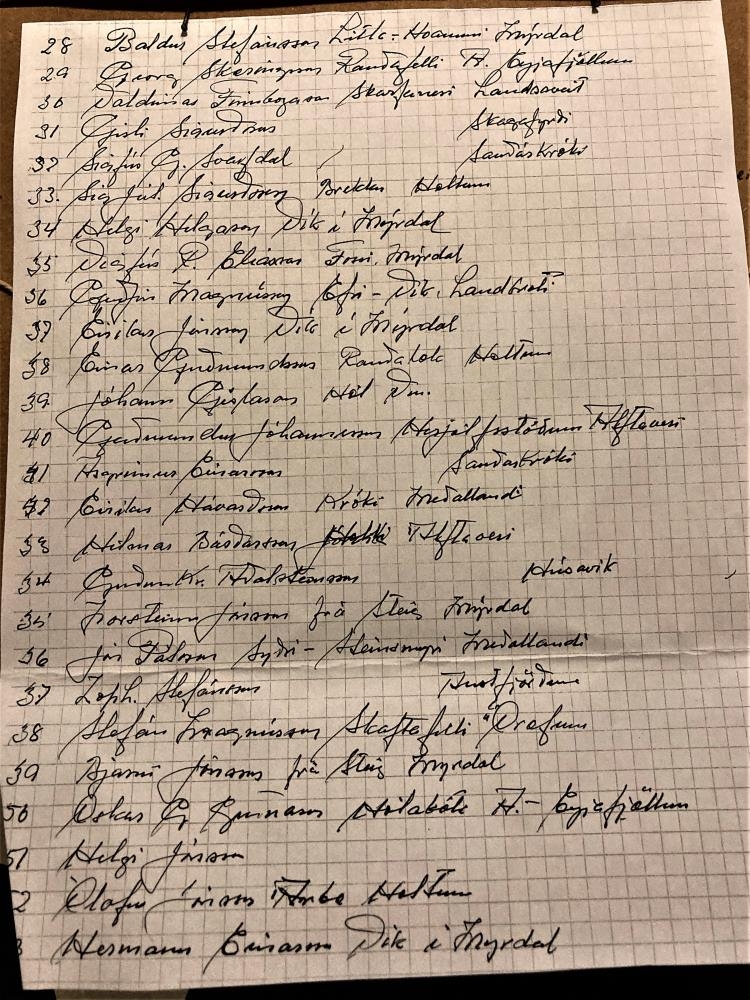 28 Baldur Stefánsson Litla-Hvammi Mýrdal
29 Georg Skæringsson Rauðafelli A. Eyjafjöllum
30 Valdimar Finnbogason Skarfanesi Landsveit
31 Gísli Sigurðsson Skagafyrði
32 Sigfús G. Svarfdal Sauðáskróki
33. Sig. Júl. Sigurðsson Brekku Holtum
34 Helgi Helgason Vík í Mýrdal
35 Vigfús P. Elíasson Mýrdal
36 Guðjón Magnússon Efri-Vík, Landbroti
37 Einar Jónsson Vík í Mýrdal
38 Einar Guðmundsson Rauðalæk Holtum
39 Jóhann Gíslason Hól Vm.
40 Guðmundur Jóhannesson Herjólfsstöðum Álftaveri
41 Ásgrímur Einarsson Sauðáskróki
42 Einar Hávarðsson Króki Meðallandi
33 Hilmar Bárðarson Álftaveri
34 Guðm Kr. Aðalsteinsson Húsavik
35 Þorsteinn Jónsson frá Steig Mýrdal
36 Jón Pálsson Syðri-Steinsmýri Meðallandi
37 Zoph. Stefánsson Austfjörðum
38 Stefán Magnússon Skaftafelli Öræfum
39 Bjarni Jónsson frá Steig Mýrdal
50 Óskar G Guðnason Hólabæk A.-Eyjafjöllum
51 Helgi Jónsson
2 Ólafur Jónsson Árbæ Holtum
3 Hermann Einarsson Vík í Mýrdal